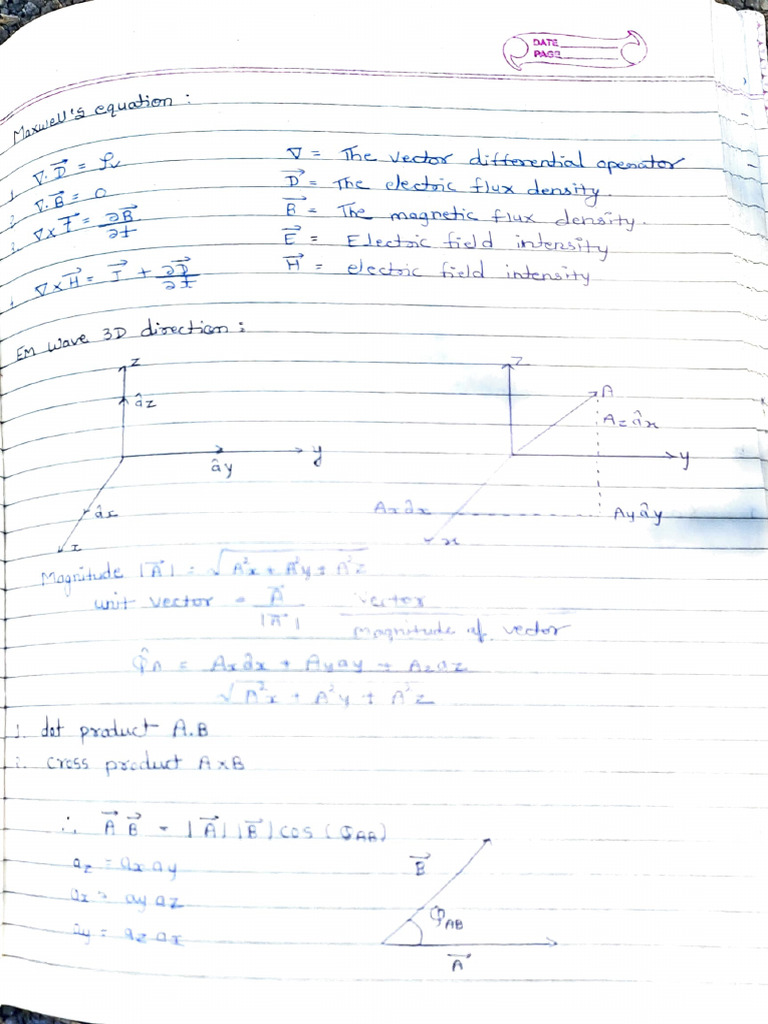 DATE
PAGE
Maxwell's equation :
1. ∇.D⃗ = ρᵥ
2. ∇.B⃗ = 0
3. ∇×E⃗ = ∂B⃗/∂t
4. ∇×H⃗ = J⃗ + ∂D⃗/∂t
∇ = The vector differential operator
D⃗ = The electric flux density.
B⃗ = The magnetic flux density.
E⃗ = Electric field intensity
H⃗ = electric field intensity
EM wave 3D direction :
z
âz
y
ây
âx
x
z
A
Az âx
y
Ax âx
Ay ây
x
Magnitude |A⃗| = √A²x + A²y + A²z
unit vector = A⃗/|A⃗| vector/magnitude of vector
âA = Ax âx + Ay ay + Az az
√A²x + A²y + A²z
1. dot product A.B
i. cross product A×B
∴ A⃗ B⃗ = |A⃗| |B⃗| cos (φAB)
az = ax ay
ax = ay az
ay = az ax
B⃗
φAB
A⃗